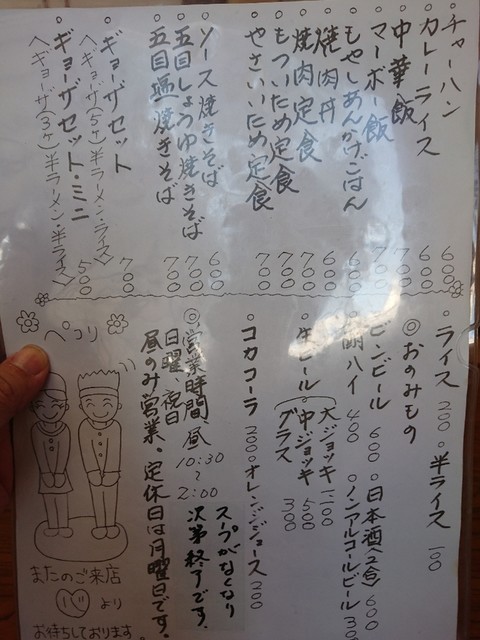 ○チャーハン 600
○カレーライス 600
○中華飯 700
○マーボー飯 700
○もやしあんかけごはん 700
○焼肉丼 600
○焼肉定食 700
○もついため定食 700
○やさいいため定食 700
○ソース焼きそば 600
○五目しょうゆ焼きそば 700
○五目塩焼きそば 700
○ギョーザセット 700
〈ギョーザ(5ケ)半ラーメン・ライス〉
○ギョーザセット・ミニ 500
〈ギョーザ(3ケ)半ラーメン・半ライス〉
○ライス 200 ○半ライス 100
◎おのみもの
ビンビール 600 ○日本酒(2合) 600
酎ハイ 400 ○ノンアルコールビール
○生ビール
大ジョッキ
中ジョッキ 500
グラス 300
○コカコーラ 200 ○オレンジジュース 200
◎営業時間、昼 10:30〜2:00
スープがなくなり
次第終了です。
日曜、祝日
昼のみ営業。定休日は月曜日です。
ペコリ
またのご来店
心より
お待ちしております。